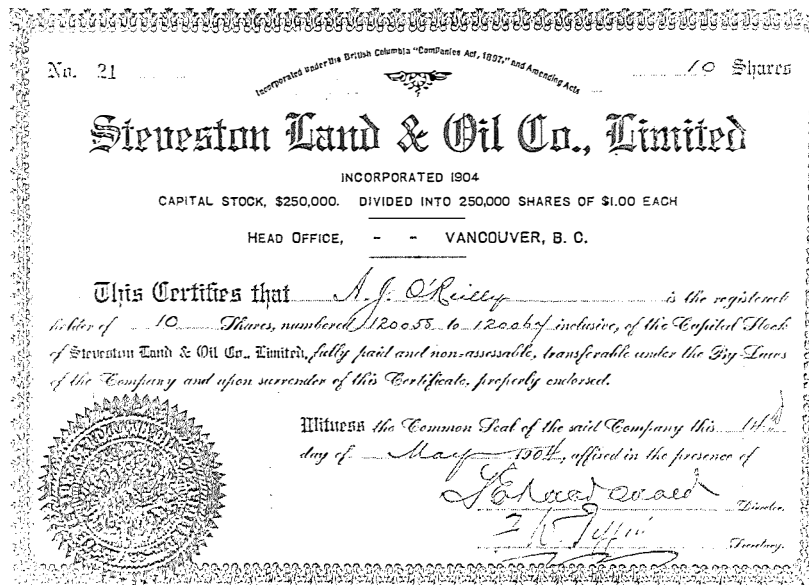 Incorporated under the British Columbia "Companies Act, 1897," and Amending Acts
No. 21 10 Shares
Steveston Land & Oil Co., Limited
INCORPORATED 1904
CAPITAL STOCK, $250,000. DIVIDED INTO 250,000 SHARES OF $1.00 EACH
HEAD OFFICE, - - VANCOUVER, B. C.
This Certifies that A. J. O'Reilly is the registered
holder of 10 Shares, numbered 120058 to 120067 inclusive, of the Capital Stock
of Steveston Land & Oil Co., Limited, fully paid and non-assessable, transferable under the By-Laws
of the Company and upon surrender of this Certificate, properly endorsed.
Witness the Common Seal of the said Company this 14th
day of May 1904, affixed in the presence of
Director.
Secretary.